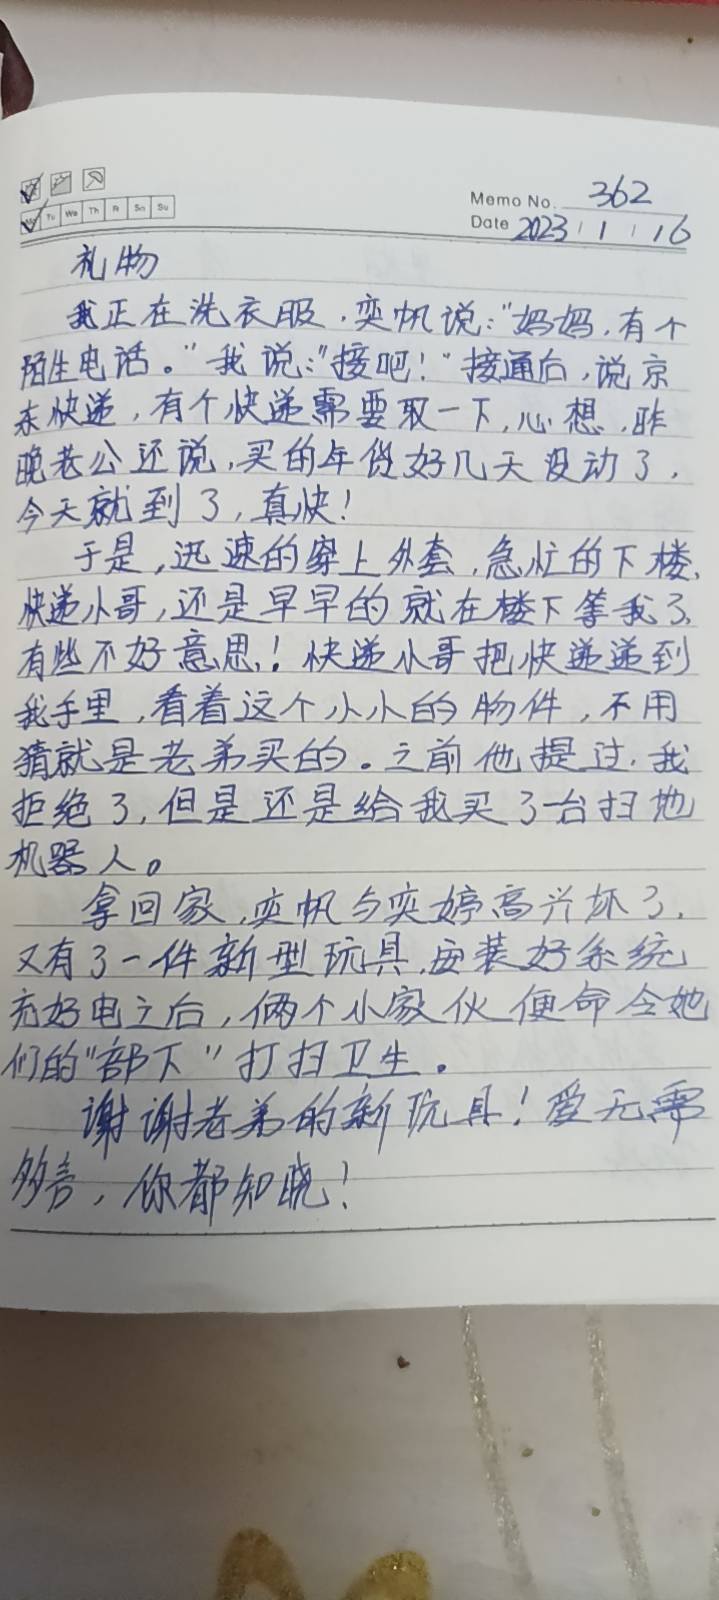 Memo No. 362
Mo Tu We Th Fr Sa Su
Date 2023 / 1 / 16
礼物
我正在洗衣服，奕帆说："妈妈，有个
陌生电话。"我说："接吧！"接通后，说京
东快递，有个快递需要取一下，心想，昨
晚老公还说，买的年货好几天没动了，
今天就到了，真快！
于是，迅速的穿上外套，急忙的下楼，
快递小哥，还是早早的就在楼下等我了，
有些不好意思！快递小哥把快递递到
我手里，看着这个小小的物件，不用
猜就是老弟买的。之前他提过，我
拒绝了，但是还是给我买了一台扫地
机器人。
拿回家，奕帆与奕婷高兴坏了，
又有了一件新型玩具，安装好系统
充好电之后，俩个小家伙便命令她
们的"部下"打扫卫生。
谢谢老弟的新玩具！爱无需
多言，你都知晓！